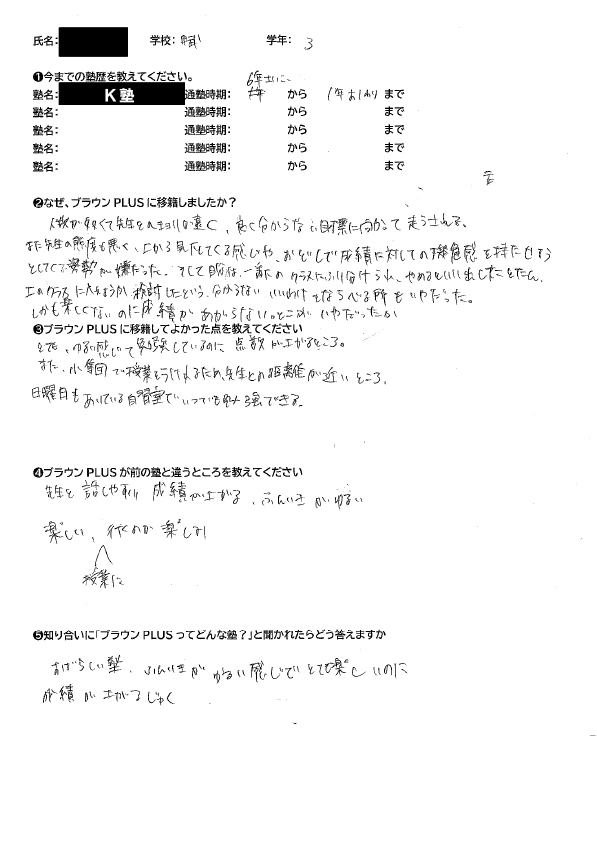 氏名: 学校: 学年: 3
❶今までの塾歴を教えてください。 6年
塾名: K塾 通塾時期: から 1年おわり まで
塾名: 通塾時期: から まで
塾名: 通塾時期: から まで
塾名: 通塾時期: から まで
塾名: 通塾時期: から まで
❷なぜ、ブラウンPLUSに移籍しましたか?
人数が多くて先生とのキョリが遠く、良く分からない目標に向かって走らされる。
また先生の態度も悪く、上から見下してくる感じや、おどしで成績に対しての危機感を持たせよう
としてくる姿勢が嫌だった。そして自分は、一番下のクラスにふり分けられ、やめるといい出したとたん、
上のクラスに入れようか検討したという、分からないいいわけをならべる所もいやだった。
しかも楽しくないのに成績があがらないところがいやだったから
❸ブラウンPLUSに移籍してよかった点を教えてください
とても、ゆるい感じで勉強しているのに点数が上がるところ。
また、小集団で授業をうけれるため先生との距離が近いところ。
日曜日もあいている自習室でいつでも勉強できる。
❹ブラウンPLUSが前の塾と違うところを教えてください
先生と話しやすい 成績が上がる、ふんいきがゆるい
楽しい、行くのが楽しみ
授業に
❺知り合いに「ブラウンPLUSってどんな塾?」と聞かれたらどう答えますか
すばらしい塾、ふんいきがゆるい感じでとても楽しいのに
成績が上がるじゅく